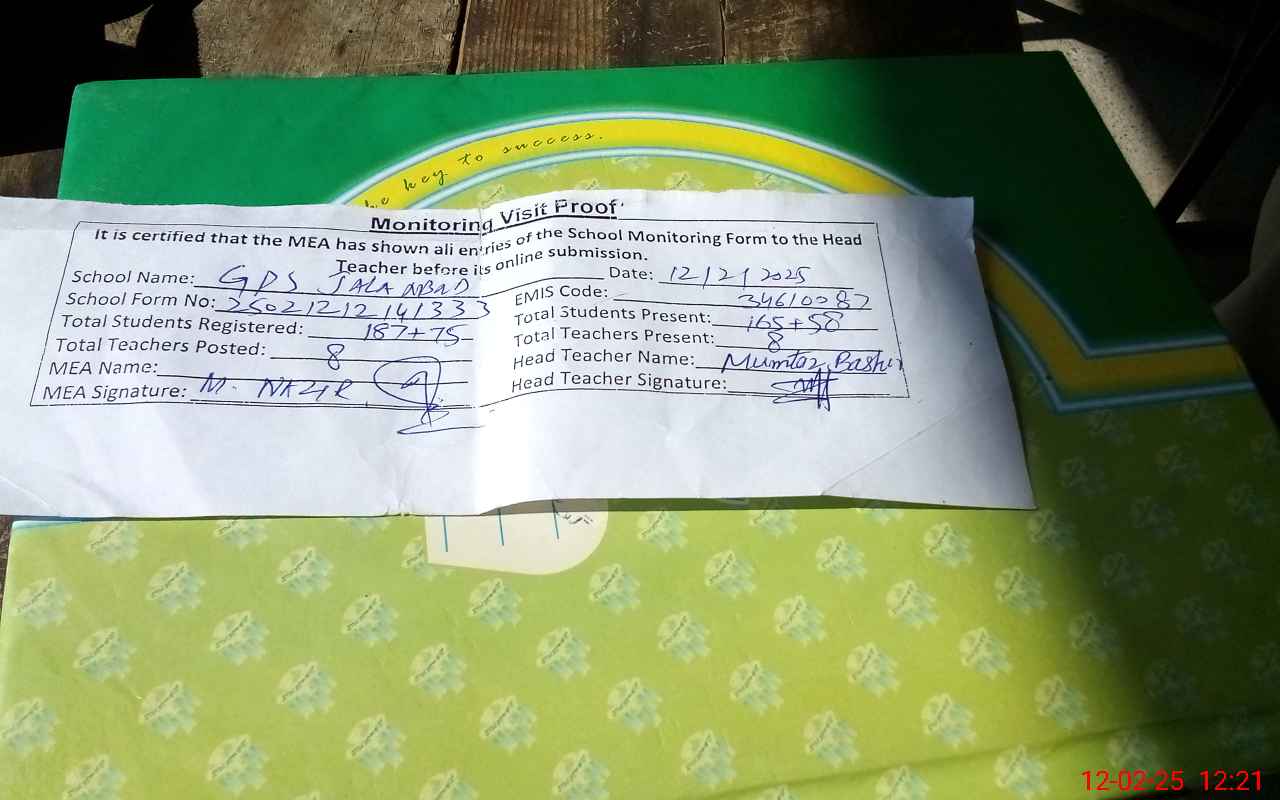 he key to success.
Monitoring Visit Proof
It is certified that the MEA has shown all entries of the School Monitoring Form to the Head
Teacher before its online submission.
School Name: GPS JALALABAD Date: 12/2/2025
School Form No: 25021212141333 EMIS Code: 34610087
Total Students Registered: 187+75 Total Students Present: 165+58
Total Teachers Posted: 8 Total Teachers Present: 8
MEA Name: Head Teacher Name: Mumtaz Bashir
MEA Signature: M. Head Teacher Signature:
12-02-25 12:21